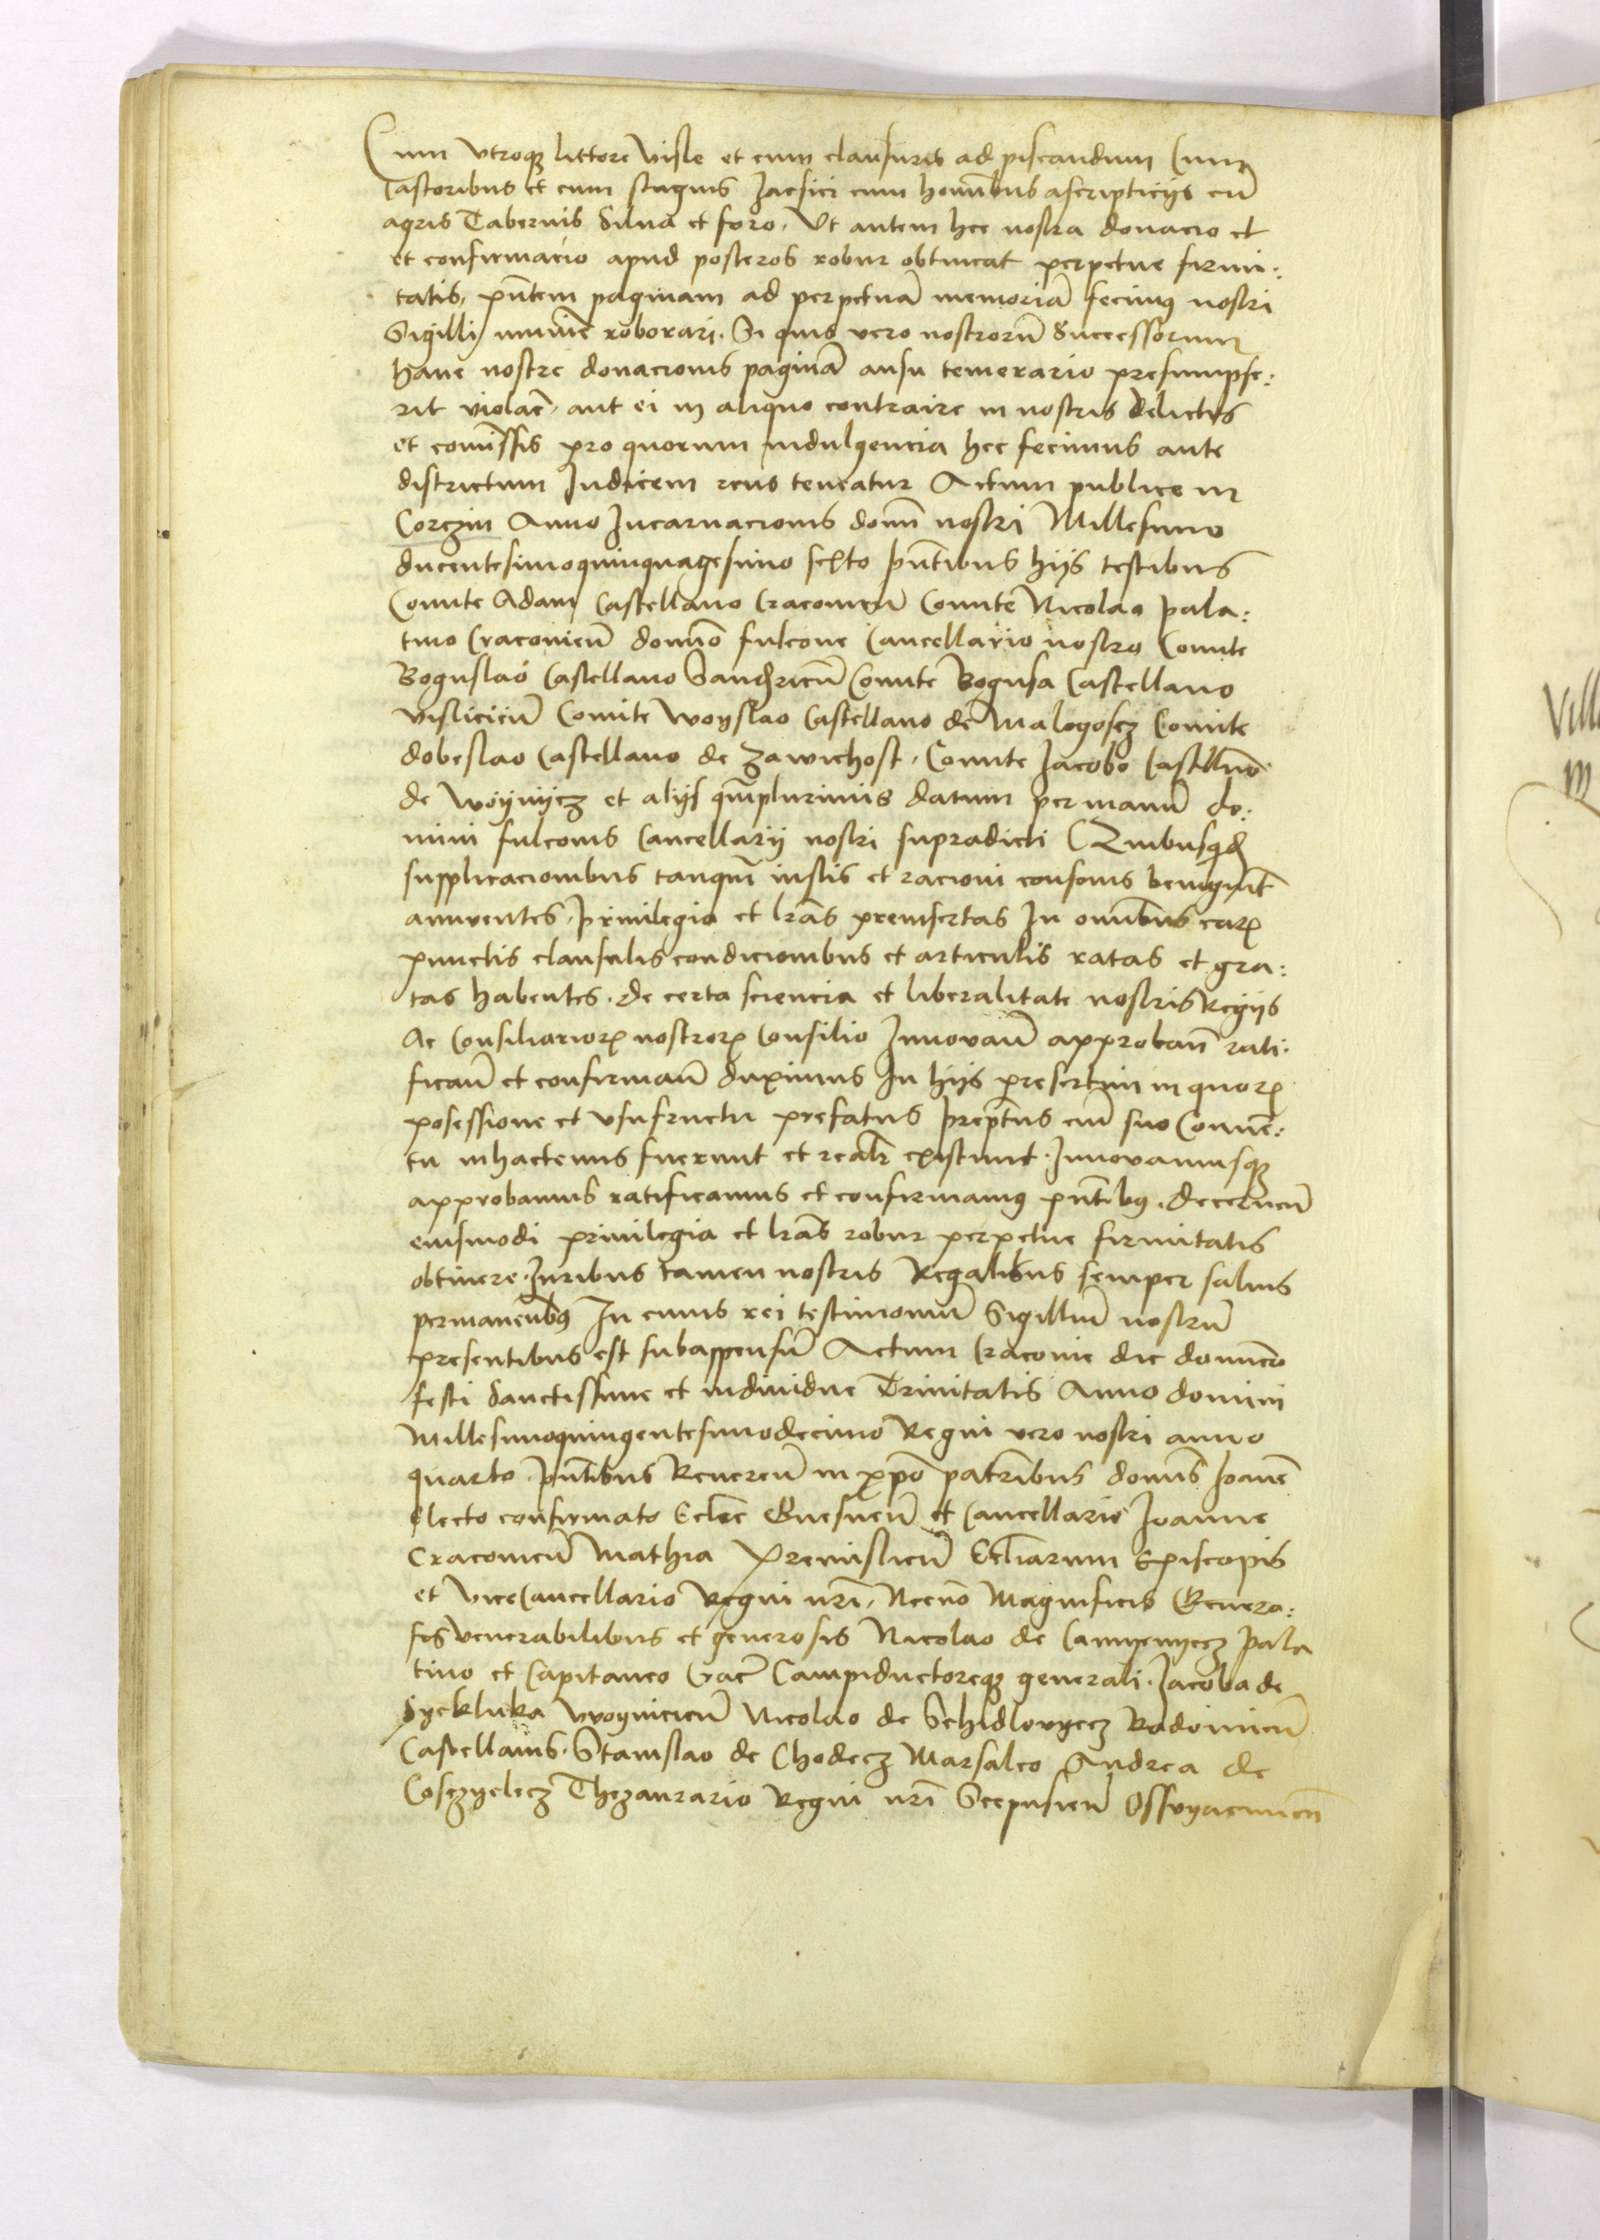 Cum vtroqz littore Visle et cum clausuris ad piscandum Cum
Castoribus et cum stagnis Jacsici cum hominibus ascripticijs cu̅
agris Tabernis Silua et foro. Vt autem hec nostra donacio et
et confirmacio apud posteros robur obtineat perpetue firmi:
tatis, pn̅tem paginam ad perpetua̅ memoria̅ fecimus nostri
Sigilli munie̅ roborari. Si quis vero nostroru̅ Successorum
hanc nostre donacionis pagina̅ ausu temerario presumpse:
rit violare̅ aut ei in aliquo contraire in nostris delictis
et comissis pro quorum indulgencia hec fecimus ante
districtum Judicem reus teneatur Actum publice in
Corczin Anno Incarnacionis domi̅ nostri Millesimo
ducentesimoquinquagesimo sexto pn̅tibus hijs testibus
Comite Adam Castellano Cracouien̅ Comite Nicolao pala:
tino Cracouien̅ domino fulcone Cancellario nostro Comite
Boguslao Castellano Sandricen̅ Comite Bogusa Castellano
vislicien̅ Comite Woyslao Castellano de Malogoscz Comite
dobeslao Castellano de Zawichost. Comite Jacobo Castellno̅
de Woyniycz et alijs qm̅plurimis datum per manu̅ do:
mini fulconis Cancellarij nostri supradicti Quibusqd̅
supplicacionibus tanqm̅ iustis et racioni consonis benignit̅
annuentes. Priuilegia et lr̅as preinsertas In omnibus earz
punctis clausulis condicionibus et articulis ratas et gra:
tas habentes. de certa sciencia et liberalitate nostris Regijs
Ac Consiliariorz nostrorz Consilio Innouan̅ approban̅ rati:
fican̅ et confirman̅ duximus In hijs presertim in quorz
posessione et vsufructu prefatus prep̅tus cum suo Conuen̅:
tu inhactenus fuerunt et realr̅ existunt. Innouamusqz
approbamus ratificamus et confirmamus pn̅tibus. decernen̅
eiusmodi priuilegia et lr̅as robur perpetue firmitatis
obtinere. Juribus tamen nostris Regalibus semper saluis
permanen̅bus In cuius rei testimoniu̅ Sigillum nostru̅
presentibus est subappensu̅ Actum Cracouie die dominico
festi Sanctissime et indiuidue Trinitatis Anno domini
Millesimoquingentesimodecimo Regni vero nostri anno
quarto. pn̅tibus Reueren̅ in xpo̅ patribus domi̅s Joan̅e
Electo confirmato Eclie̅ Gnesnen̅ et Cancellario Joanne
Cracouien̅ Mathia Premislien̅ Ecli̅arum Episcopis
et ViceCancellario Regni nri̅. Necno̅ Magnificis Genera:
sis venerabilibus et generosis Nicolao de Camyenyecz Pala
tino et Capitaneo Crac̅ Campiductoreqz generali. Jacoba de
Syekluka Woynicien̅ Nicolao de Schidlovyecz Radomien̅
Castellanis. Stanislao de Chodecz Marsalco Andrea de
Cosczyelecz Thezaurario Regni nri̅ Scepusien̅ Osswyacimien̅